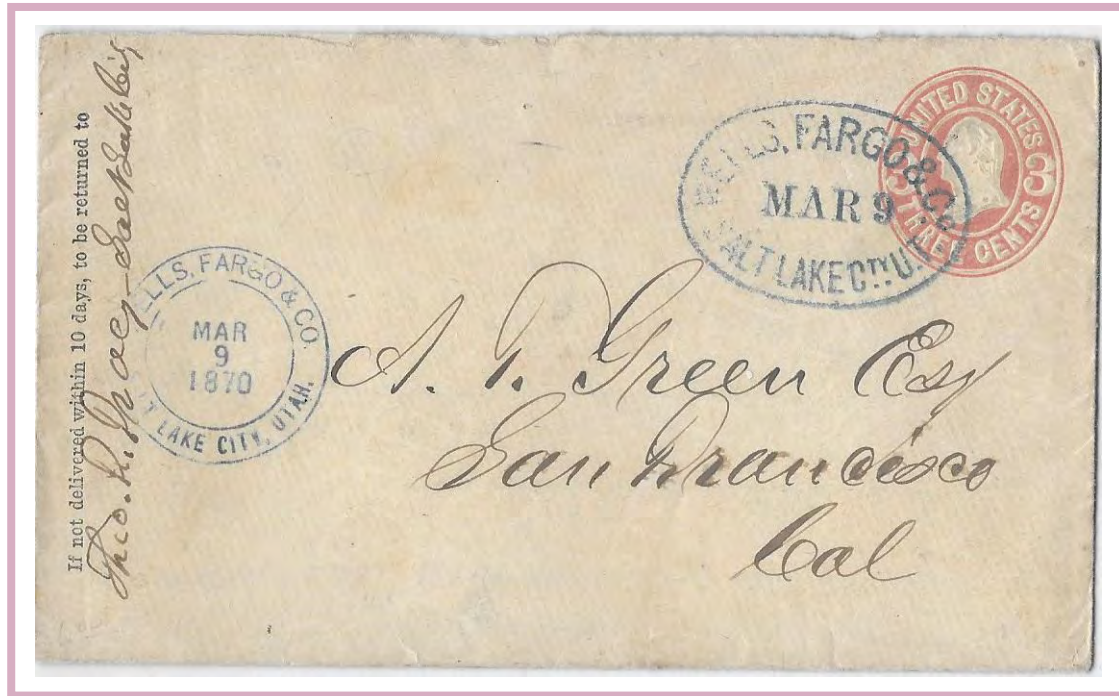 If not delivered within 10 days, to be returned to
WELLS, FARGO & CO.
MAR
9
1870
SALT LAKE CITY, UTAH.
WELLS, FARGO & Co
MAR 9
SALT LAKE CTY. U.T.
UNITED STATES
3 3
THREE CENTS
A. T. Green Esq
San Francisco
Cal